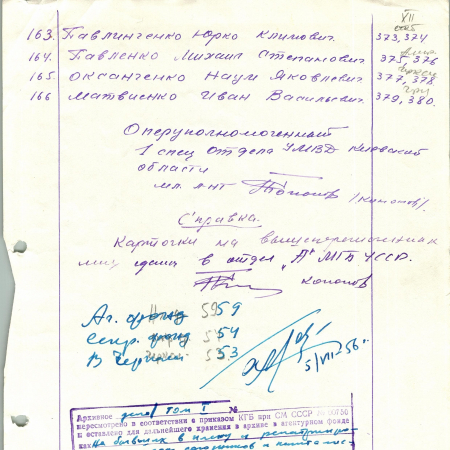 XII
163. Павличенко Юрко Климович. 373, 374
164. Павленко Михаил Степанович 375, 376
165. Оксанченко Наум Яковлевич. 377, 378
166 Матвиенко Иван Васильевич. 379, 380.
Оперуполномоченный
1 спец отдела УМВД Киевской
области
мл. лнт Копопов (Копопов).
Справка.
Карточки на вышеперечисленных
лиц сданы в отдел "А" МГБ УССР.
Копопов
Аг. фонд 59
Секр. фонд 54
В 53
5/VII-56
Архивное дело том I №
пересмотрено в соответствии с приказом КГБ при СМ СССР № 00150
и оставлено для дальнейшего хранения в архиве в агентурном фонде
как На бывших в плену и